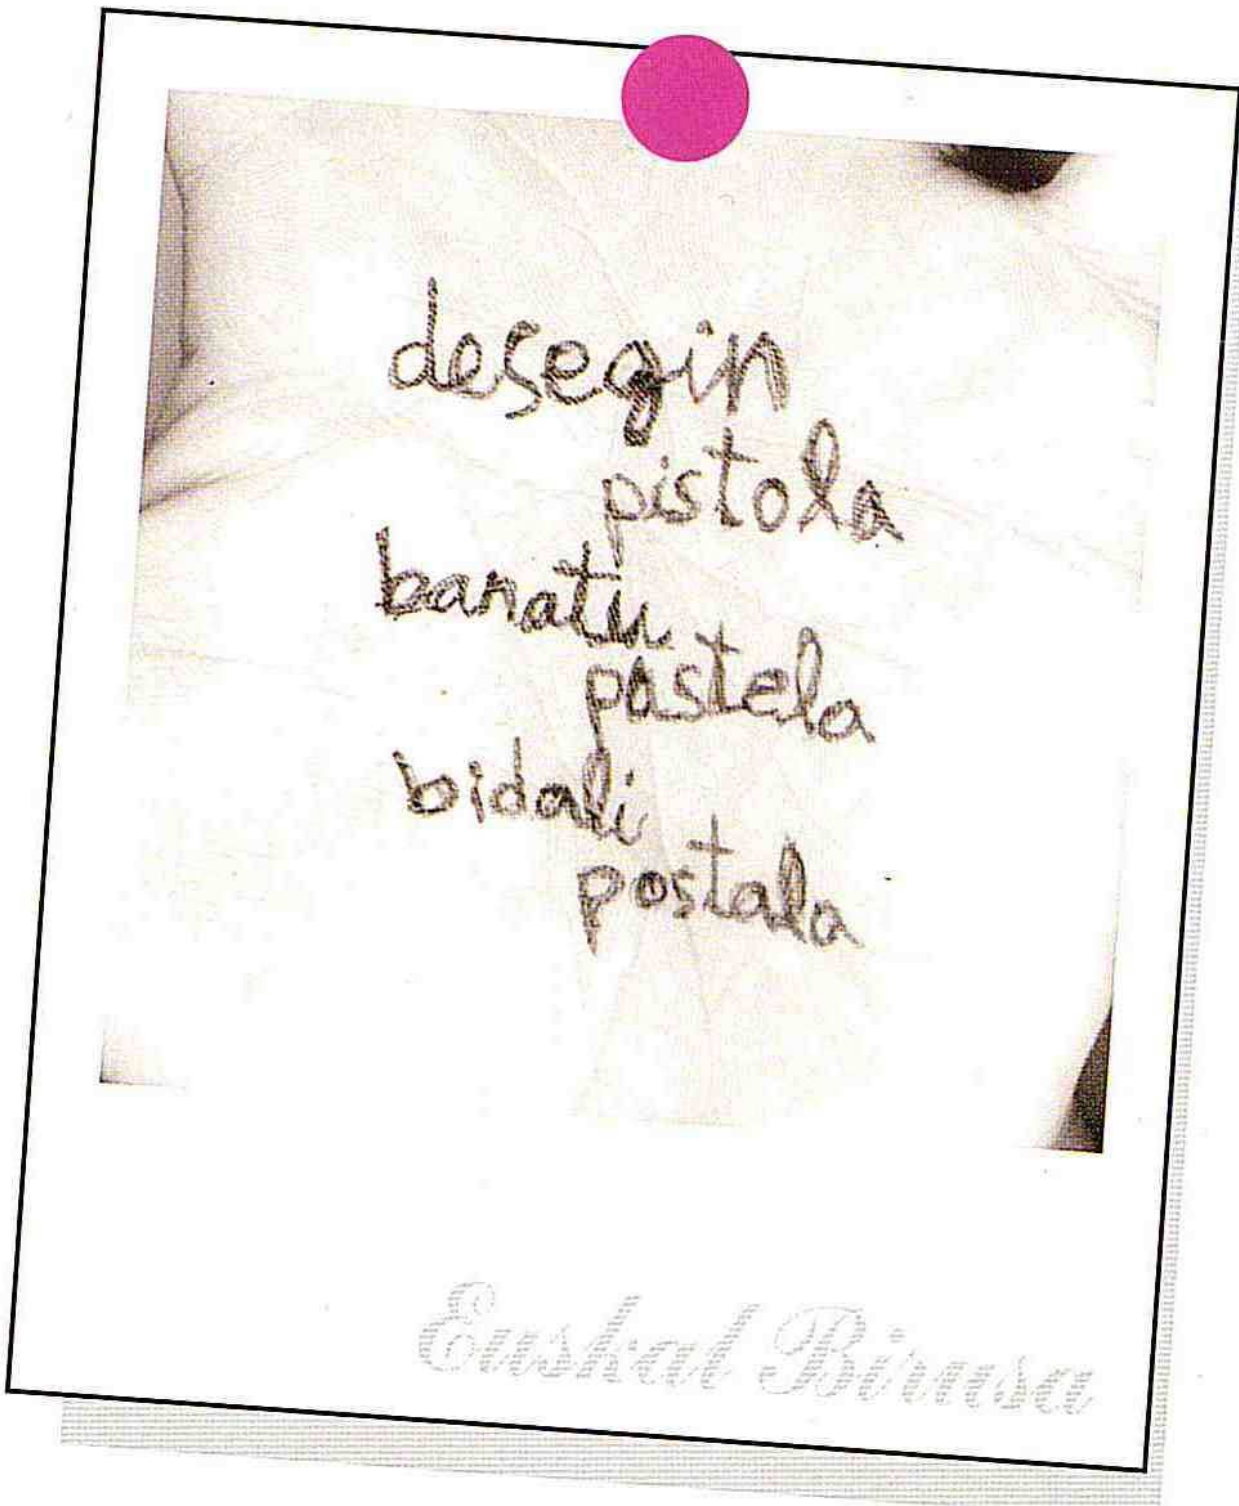 desegin
pistola
banatu
pastela
bidali
postala
Euskal Birusa